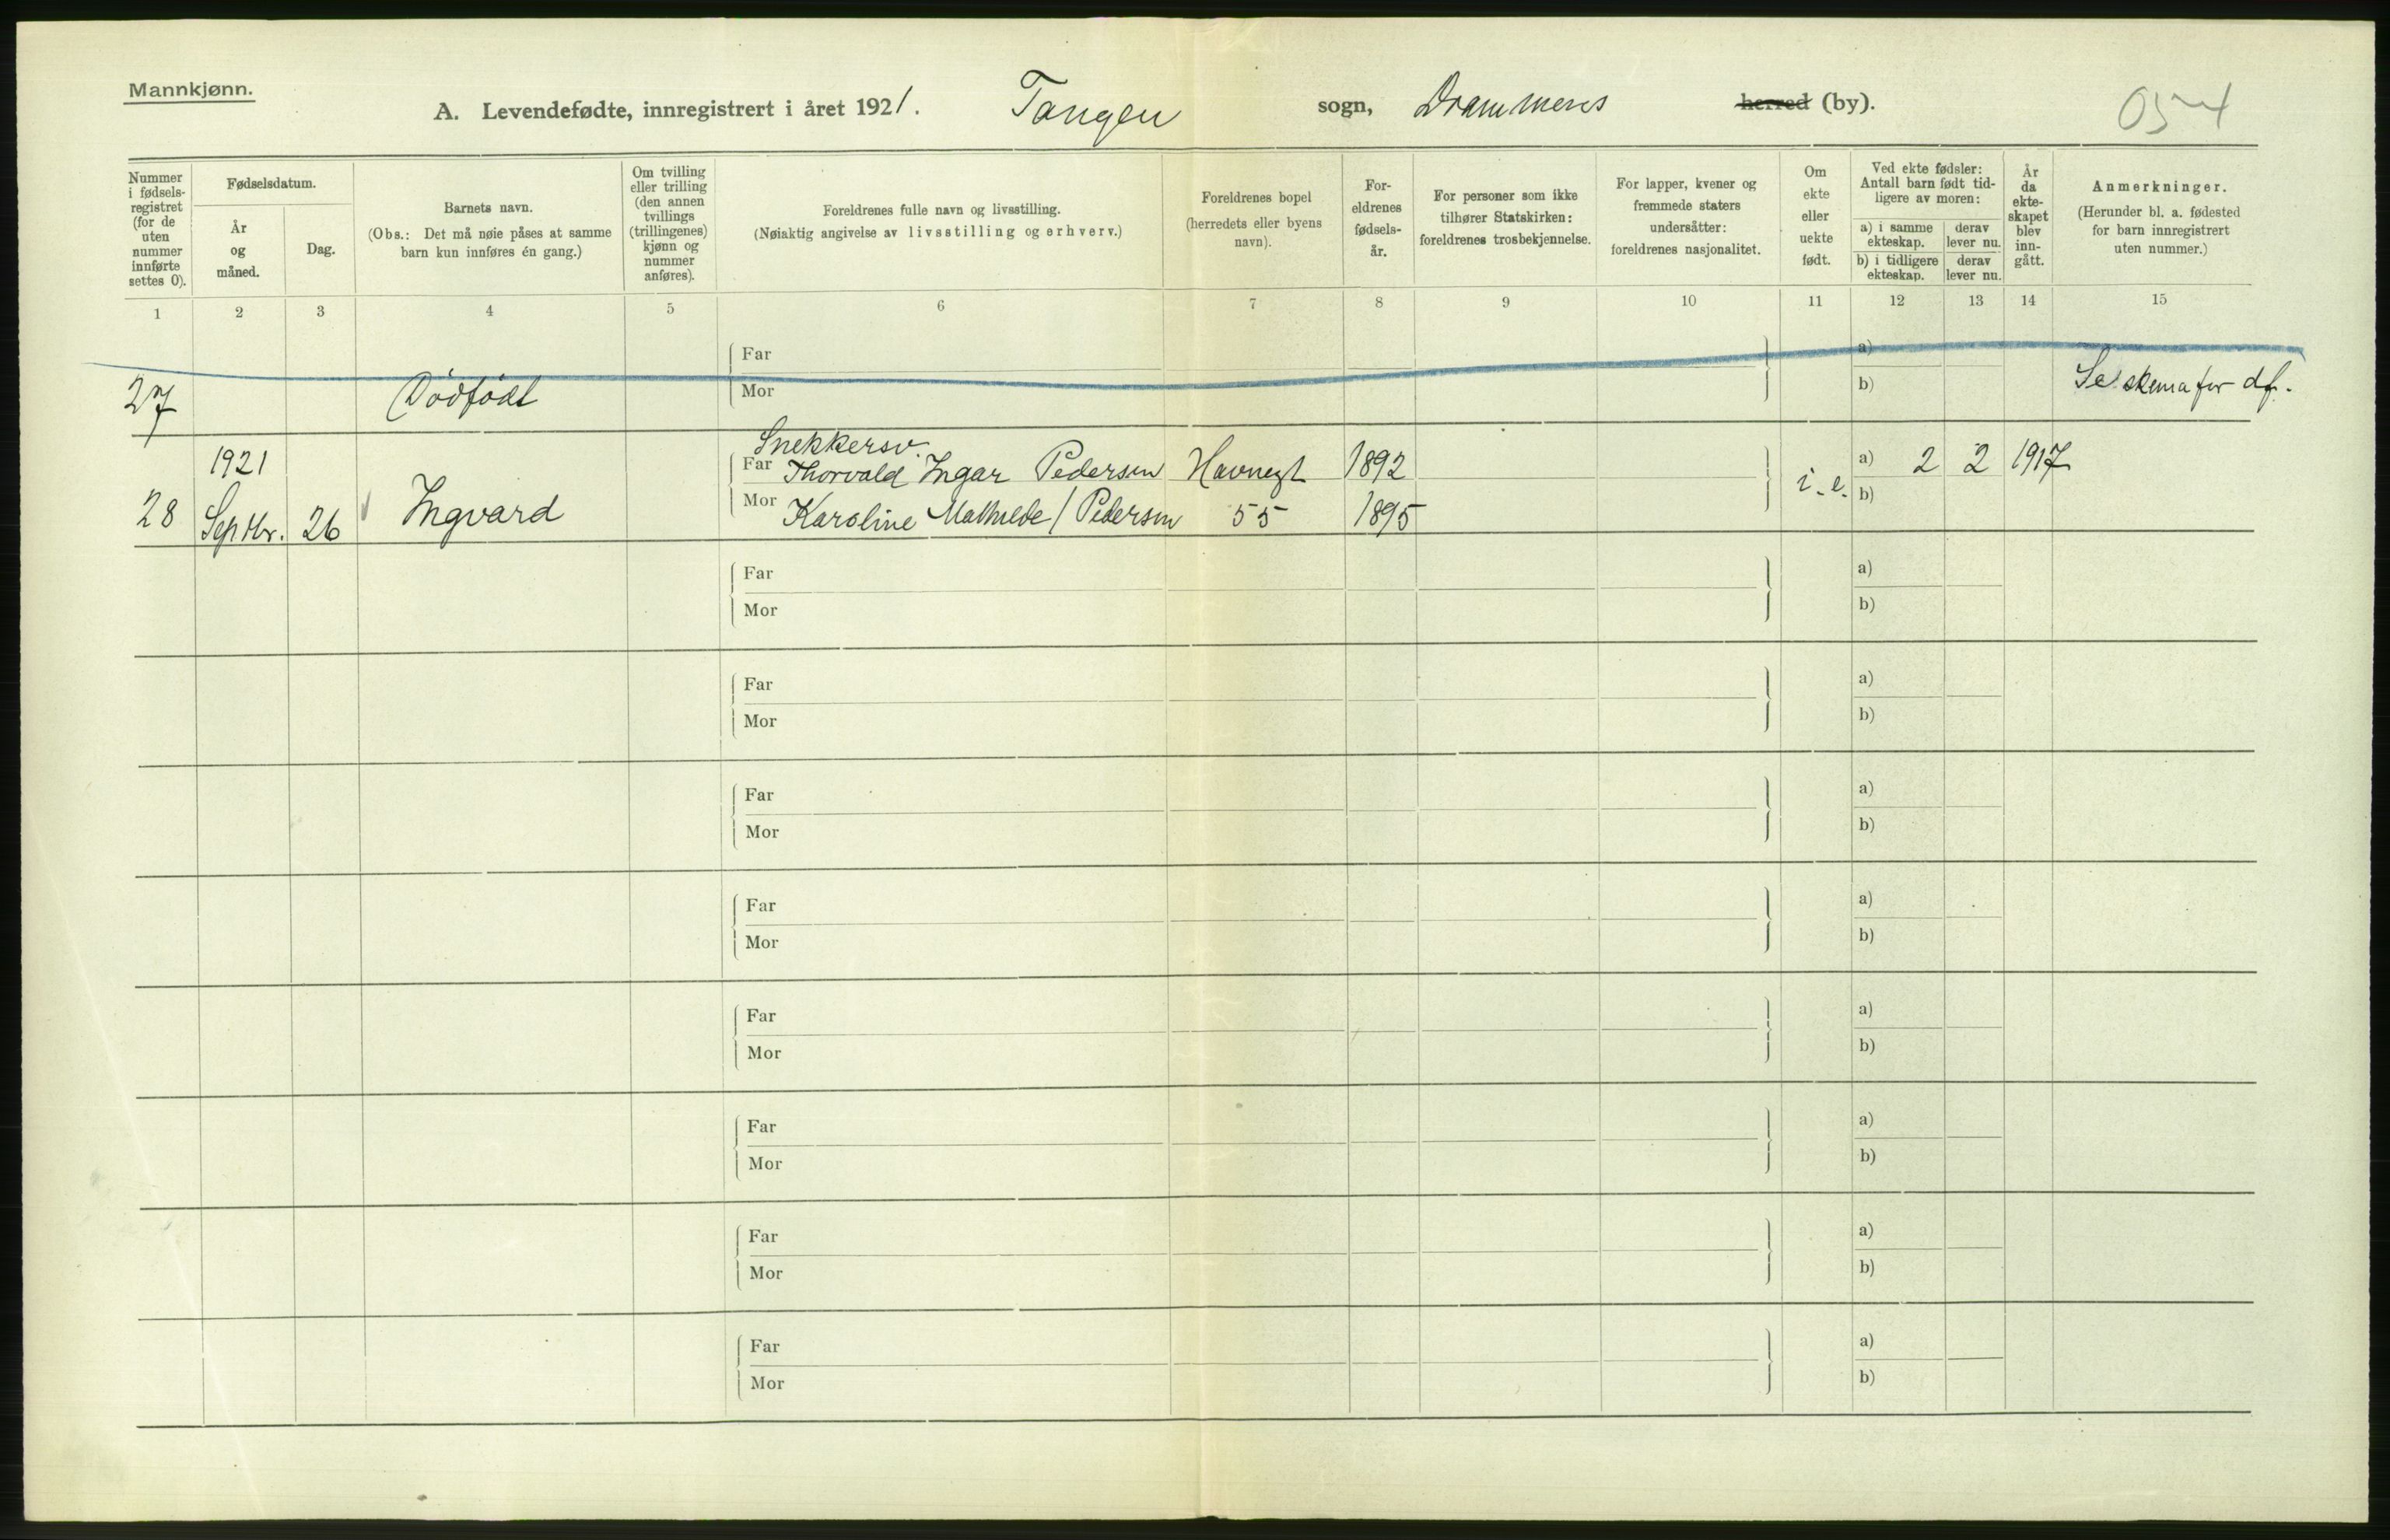 Mannkjønn.
A. Levendefødte, innregistrert i året 1921. Tangen sogn, Drammens herred (by).
Nummer i fødsels-registret (for de uten nummer innførte settes 0).
Fødselsdatum.
År og måned.
Dag.
Barnets navn.
(Obs.: Det må nøie påses at samme barn kun innføres én gang.)
Om tvilling eller trilling (den annen tvillings (trillingenes) kjønn og nummer anføres).
Foreldrenes fulle navn og livsstilling.
(Nøiaktig angivelse av livsstilling og erhverv.)
Foreldrenes bopel
(herredets eller byens navn).
For-eldrenes fødsels-år.
For personer som ikke tilhører Statskirken: foreldrenes trosbekjennelse.
For lapper, kvener og fremmede staters undersåtter: foreldrenes nasjonalitet.
Om ekte eller uekte født.
Ved ekte fødsler: Antall barn født tid-ligere av moren:
a) i samme ekteskap.
derav lever nu.
b) i tidligere ekteskap.
derav lever nu.
År da ekte-skapet blev inn-gått.
Anmerkninger.
(Herunder bl. a. fødested for barn innregistrert uten nummer.)
1 2 3 4 5 6 7 8 9 10 11 12 13 14 15
Far a)
27 Dødfødt Mor b) Se skema for df.
Snekkersv.
1921 Far Thorvald Ingar Pedersen Havnegt 1892 a) 2 2 1917
28 Septbr. 26 Ingvard Mor Karoline Mathilde / Pedersen 55 1895 i. e. b)
Far a)
Mor b)
Far a)
Mor b)
Far a)
Mor b)
Far a)
Mor b)
Far a)
Mor b)
Far a)
Mor b)
Far a)
Mor b)
Far a)
Mor b)